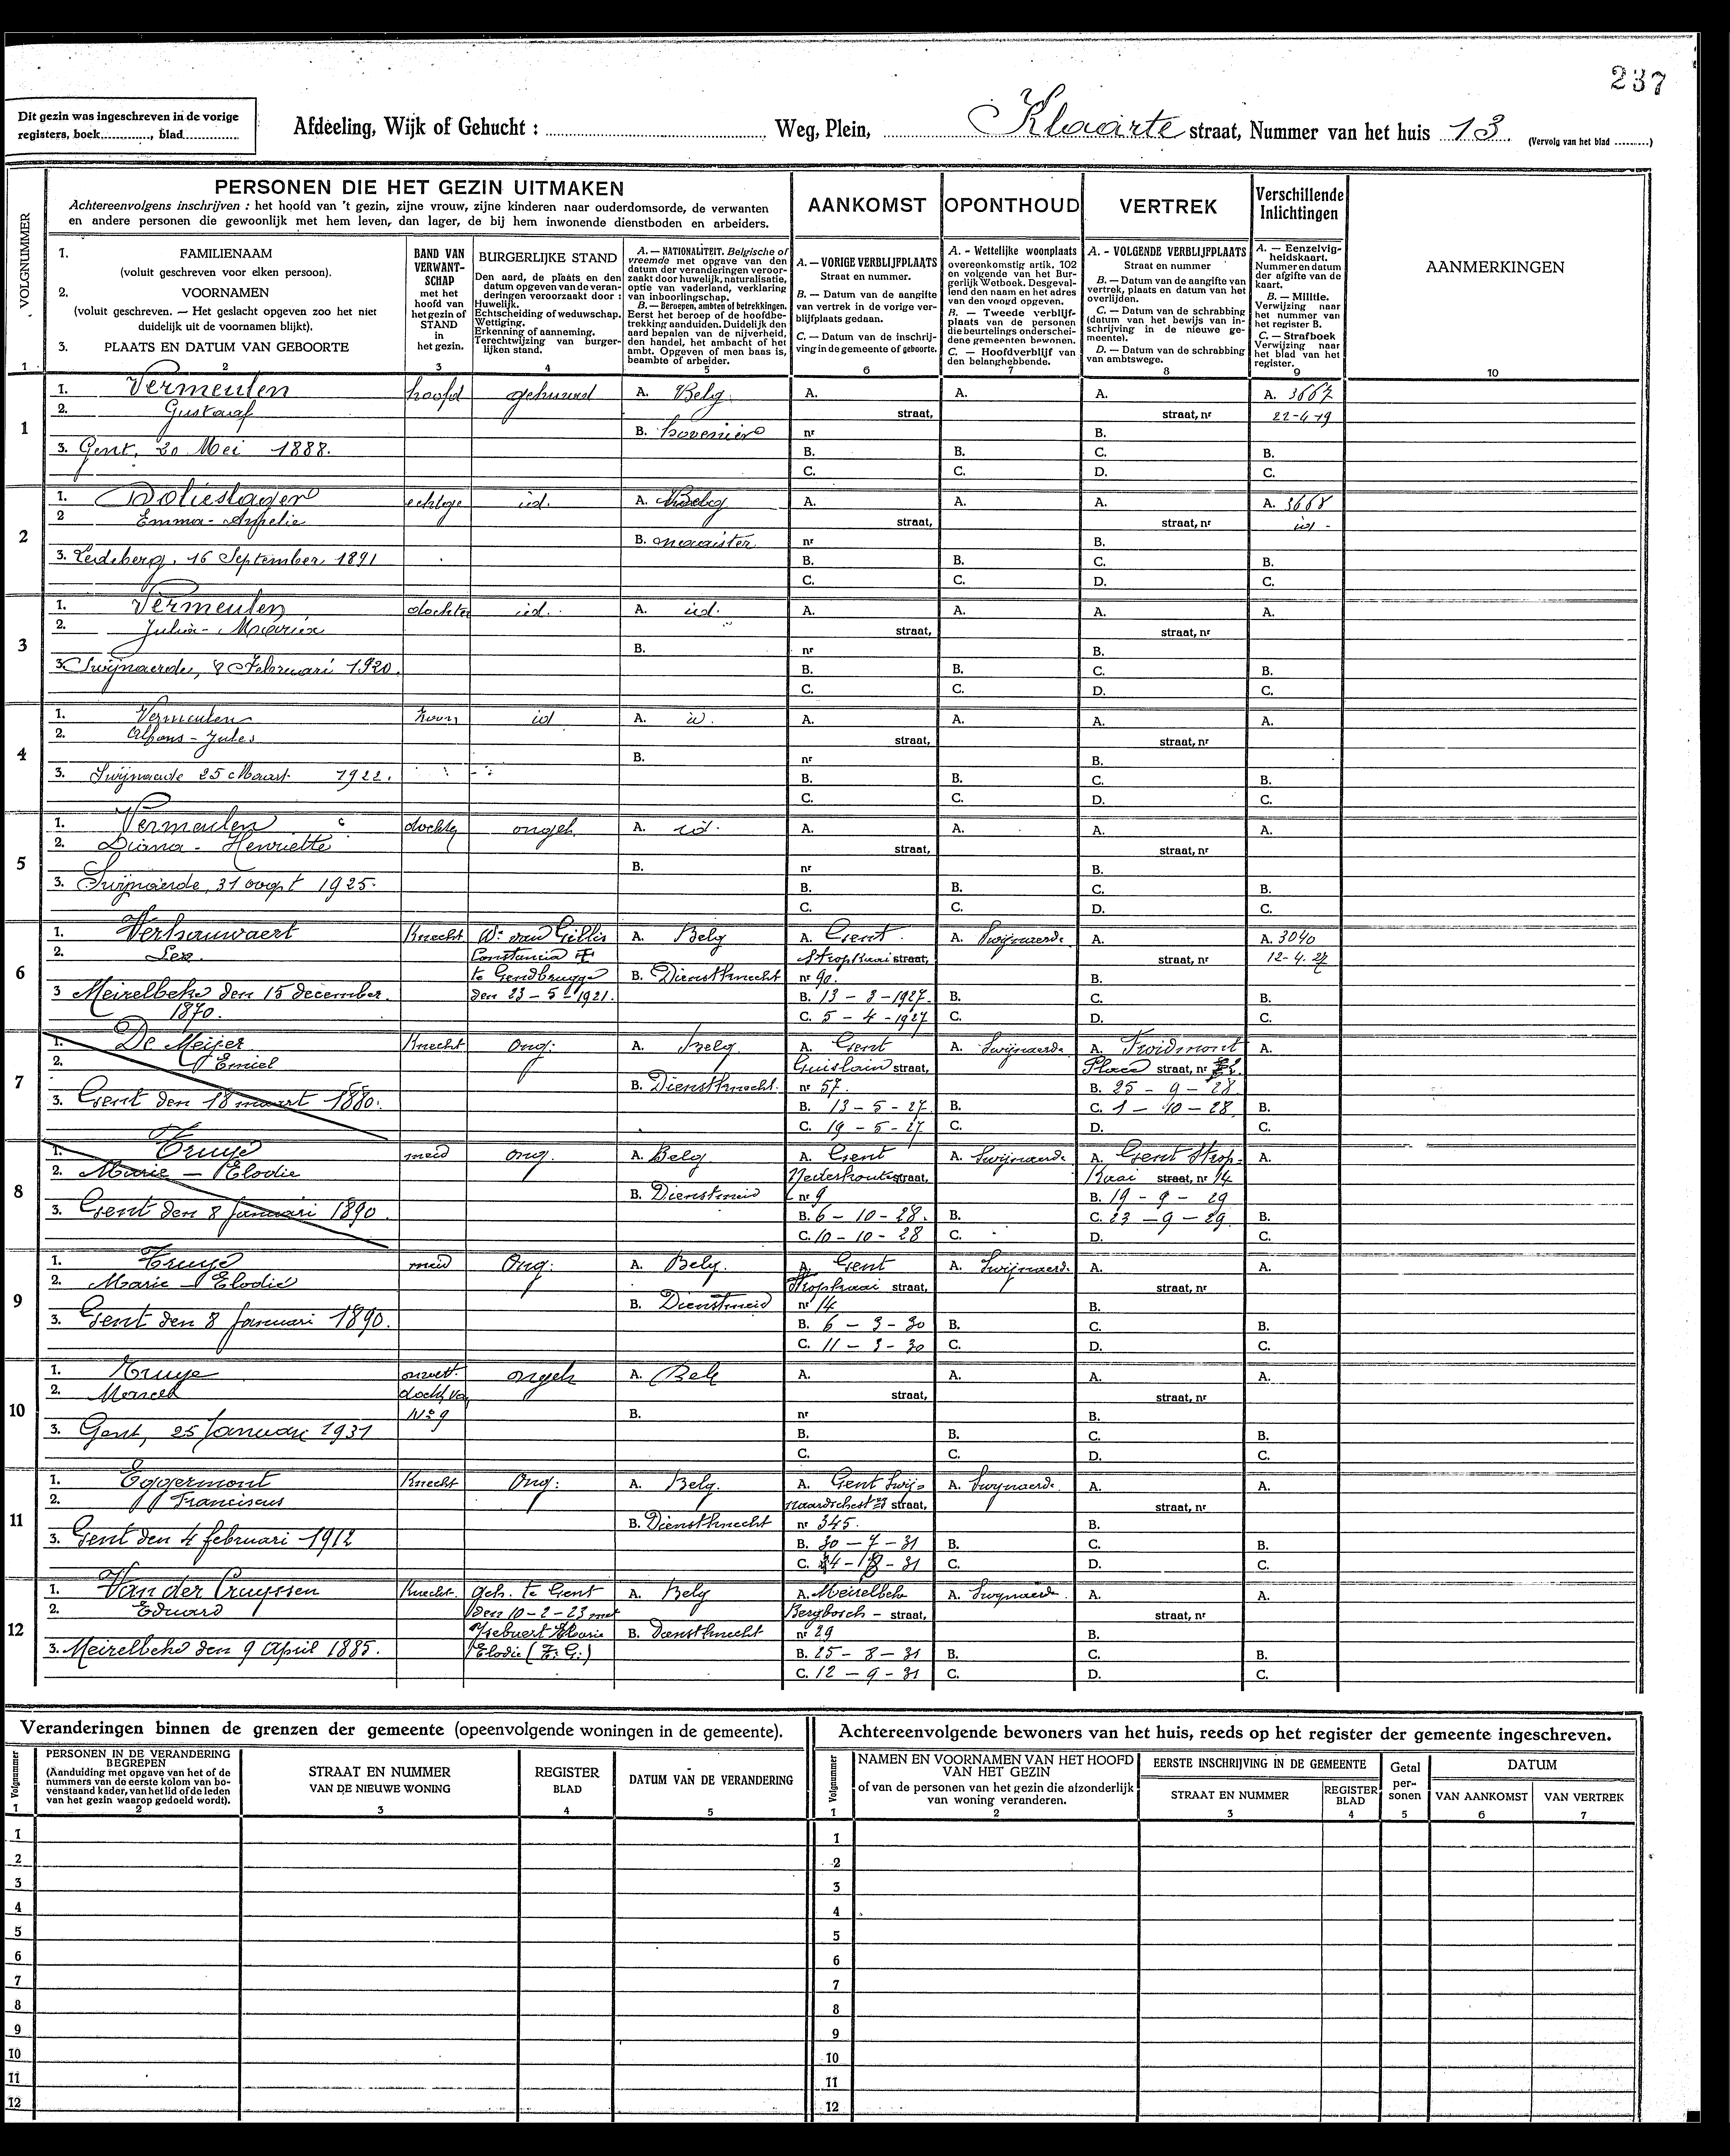 237
Dit gezin was ingeschreven in de vorige
registers, boek............, blad................
Afdeeling, Wijk of Gehucht : Weg, Plein, Klaarte straat, Nummer van het huis 13 (Vervolg van het blad .........)
VOLGNUMMER
PERSONEN DIE HET GEZIN UITMAKEN
Achtereenvolgens inschrijven : het hoofd van 't gezin, zijne vrouw, zijne kinderen naar ouderdomsorde, de verwanten
en andere personen die gewoonlijk met hem leven, dan lager, de bij hem inwonende dienstboden en arbeiders.
AANKOMST
OPONTHOUD
VERTREK
Verschillende
Inlichtingen
1. FAMILIENAAM
(voluit geschreven voor elken persoon).
2. VOORNAMEN
(voluit geschreven. — Het geslacht opgeven zoo het niet
duidelijk uit de voornamen blijkt).
3. PLAATS EN DATUM VAN GEBOORTE
BAND VAN
VERWANT-
SCHAP
met het
hoofd van
het gezin of
STAND
in
het gezin.
BURGERLIJKE STAND
Den aard, de plaats en den
datum opgeven van de veran-
deringen veroorzaakt door :
Huwelijk.
Echtscheiding of weduwschap.
Wettiging.
Erkenning of aanneming.
Terechtwijzing van burger-
lijken stand.
A. — NATIONALITEIT. Belgische of
vreemde met opgave van den
datum der veranderingen veroor-
zaakt door huwelijk, naturalisatie,
optie van vaderland, verklaring
van inboorlingschap.
B. — Beroepen, ambten of betrekkingen.
Eerst het beroep of de hoofdbe-
trekking aanduiden. Duidelijk den
aard bepalen van de nijverheid,
den handel, het ambacht of het
ambt. Opgeven of men baas is,
beambte of arbeider.
A. — VORIGE VERBLIJFPLAATS
Straat en nummer.
B. — Datum van de aangifte
van vertrek in de vorige ver-
blijfplaats gedaan.
C. — Datum van de inschrij-
ving in de gemeente of geboorte.
A. - Wettelijke woonplaats
overeenkomstig artik. 102
en volgende van het Bur-
gerlijk Wetboek. Desgeval-
lend den naam en het adres
van den voogd opgeven.
B. — Tweede verblijf-
plaats van de personen
die beurtelings onderschei-
dene gemeenten bewonen.
C. — Hoofdverblijf van
den belanghebbende.
A. - VOLGENDE VERBLIJFPLAATS
Straat en nummer
B. — Datum van de aangifte van
vertrek, plaats en datum van het
overlijden.
C. — Datum van de schrabbing
(datum van het bewijs van in-
schrijving in de nieuwe ge-
meente).
D. — Datum van de schrabbing
van ambtswege.
A. — Eenzelvig-
heidskaart.
Nummer en datum
der afgifte van de
kaart.
B. — Militie.
Verwijzing naar
het nummer van
het register B.
C. — Strafboek
Verwijzing naar
het blad van het
register.
AANMERKINGEN
1 2 3 4 5 6 7 8 9 10
1. Vermeulen hoofd gehuwd A. Belg A. A. A. A. 3667
2. Gustaaf straat, straat, nr 22-4-19
1 B. hovenier nr B.
3. Gent, 20 Mei 1888. B. B. C. B.
C. C. D. C.
1. echtge id. A. Belg A. A. A. A. 3668
2 Emma- straat, straat, nr id -
2 B. nr B.
3. Ledeberg, 16 September 1891 B. B. C. B.
C. C. D. C.
1. Vermeulen dochter id. A. id. A. A. A. A.
2. Julia- Maria straat, straat, nr
3 B. nr B.
3. Swijnaerde, 8 Februari 1920. B. B. C. B.
C. C. D. C.
1. Vermeulen zoon id A. id. A. A. A. A.
2. Alfons - Jules straat, straat, nr
4 B. nr B.
3. Swijnaerde 25 Maart 1922. B. B. C. B.
C. C. D. C.
1. Vermeulen dochte ongeh A. id. A. A. A. A.
2. Diana - Henriette straat, straat, nr
5 B. nr B.
3. Swijnaerde, 31 oogst 1925. B. B. C. B.
C. C. D. C.
1. Verhauwaert Knecht Wr van Gillis A. Belg A. Gent. A. Swijnaerde A. A. 3040
2. Leo. Constancia Stropkaai straat, straat, nr 12-4.27
6 te Gendbrugge B. Dienstknecht nr 90. B.
3 Meirelbeke den 15 december den 23-5-1921. B. 13 - 3 -1927. B. C. B.
1870. C. 5 - 4 -1927 C. D. C.
1. De Meijer Knecht Ong: A. Belg A. Gent A. Swijnaerde A. Froidmont A.
2. Emiel Guislain straat, Place straat, nr
7 B. Dienstknecht. nr 57. B. 25 - 9 - 28.
3. Gent den 18 maart 1880. B. 13 - 5 - 27 B. C. 1 - 10 - 28. B.
C. 19 - 5 - 27 C. D. C.
1. Truye meid Ong. A. Belg A. Gent A. Swijnaerde A. Gent Strop- A.
2. Marie - Elodie straat, Kaai straat, nr 14
8 B. Dienstmeid nr 9 B. 19 - 9 - 29
3. Gent den 8 Januari 1890. B. 6 - 10 - 28. B. C. 23 - 9 - 29. B.
C. 10 - 10 - 28 C. D. C.
1. Truye meid Ong: A. Belg. A. Gent A. Swijnaerde A. A.
2. Marie - Elodie Stropkaai straat, straat, nr
9 B. Dienstmeid nr 14 B.
3. Gent den 8 Januari 1890. B. 6 - 3 - 30 B. C. B.
C. 11 - 3 - 30 C. D. C.
1. Truye onwet. ongeh A. Belg A. A. A. A.
2. docht van straat, straat, nr
10 No 9 B. nr B.
3. Gent, 25 Januari 1931 B. B. C. B.
C. C. D. C.
1. Eggermont Knecht Ong: A. Belg. A. Gent Swij- A. Swijnaerde A. A.
2. Franciscus naardschestwg straat, straat, nr
11 B. Dienstknecht nr 345. B.
3. Gent den 4 februari 1912 B. 30 - 7 - 31 B. C. B.
C. 4 - 8 - 31 C. D. C.
1. Van der Cruyssen Knecht. geh. te Gent A. Belg A. Meirelbeke A. Swijnaerde A. A.
2. Eduard den 10-2-23 met Bergbosch - straat, straat, nr
12 Ysebaert Marie B. Dienstknecht nr 29 B.
3. Meirelbeke den 9 April 1885. Elodie (Z. G.) B. 25 - 8 - 31 B. C. B.
C. 12 - 9 - 31 C. D. C.
Veranderingen binnen de grenzen der gemeente (opeenvolgende woningen in de gemeente).
Volgnummer
PERSONEN IN DE VERANDERING
BEGREPEN
(Aanduiding met opgave van het of de
nummers van de eerste kolom van bo-
venstaand kader, van het lid of de leden
van het gezin waarop gedoeld wordt).
STRAAT EN NUMMER
VAN DE NIEUWE WONING
REGISTER
BLAD
DATUM VAN DE VERANDERING
1 2 3 4 5
1
2
3
4
5
6
7
8
9
10
11
12
Achtereenvolgende bewoners van het huis, reeds op het register der gemeente ingeschreven.
Volgnummer
NAMEN EN VOORNAMEN VAN HET HOOFD
VAN HET GEZIN
of van de personen van het gezin die afzonderlijk
van woning veranderen.
EERSTE INSCHRIJVING IN DE GEMEENTE
STRAAT EN NUMMER
REGISTER
BLAD
Getal
per-
sonen
DATUM
VAN AANKOMST
VAN VERTREK
1 2 3 4 5 6 7
1
2
3
4
5
6
7
8
9
10
11
12